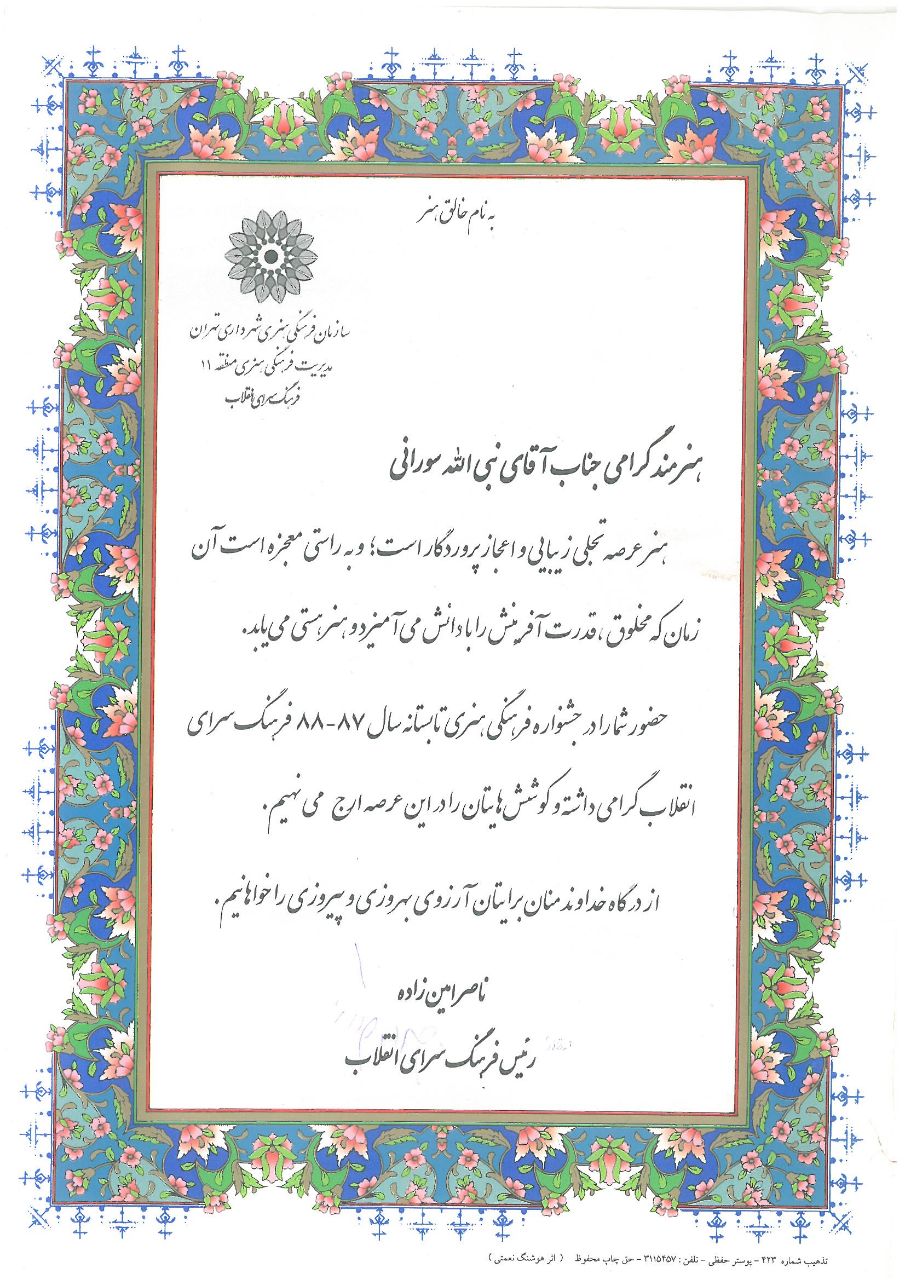 به نام خالق هنر
سازمان فرهنگی هنری شهرداری تهران
مدیریت فرهنگی هنری منطقه ۱۱
فرهنگ سرای انقلاب
هنرمند گرامی جناب آقای نبی الله سورانی
هنر عرصه تجلی زیبایی و اعجاز پروردگار است؛ و به راستی معجزه است آن
زمان که مخلوق ، قدرت آفرینش را با دانش می آمیزد و هنر هستی می یابد.
حضور شما را در جشنواره فرهنگی هنری تابستانه سال ۸۷-۸۸ فرهنگ سرای
انقلاب گرامی داشته و کوشش هایتان را در این عرصه ارج می نهیم.
از درگاه خداوند منان برایتان آرزوی بهروزی و پیروزی را خواهانیم.
ناصر امین زاده
رئیس فرهنگ سرای انقلاب
تذهیب شماره ۴۲۳ - پوستر حفظی - تلفن : ۳۱۱۵۴۵۷ - حق چاپ محفوظ ( اثر هوشنگ نعمتی )